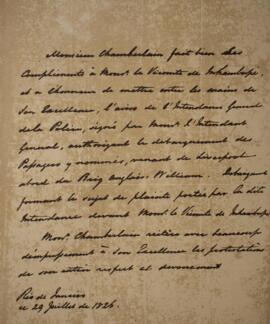 Monsieur Chamberlain fait bien des
Complimens à Monsr. le Vicomte de Inhambupe,
et a l'honneur de mettre entre les mains de
Son Excellence, l'avis de l'Intendance General
de la Police, signé par Monsr. l'Intendant
General, authorizant le debarquement des
Passagers y nommés, venant de Liverpool
abord du Brig Anglais William.
formant le sujet de plainte portée par la dite
Intendance devant Monsr. le Vicomte de Inhambupe
Monsr. Chamberlain réitère avec beaucoup
d'empressement à Son Excellence les protestations
de son entier respect et devouement
Rio de Janeiro
ce 29 Juillet de 1826.